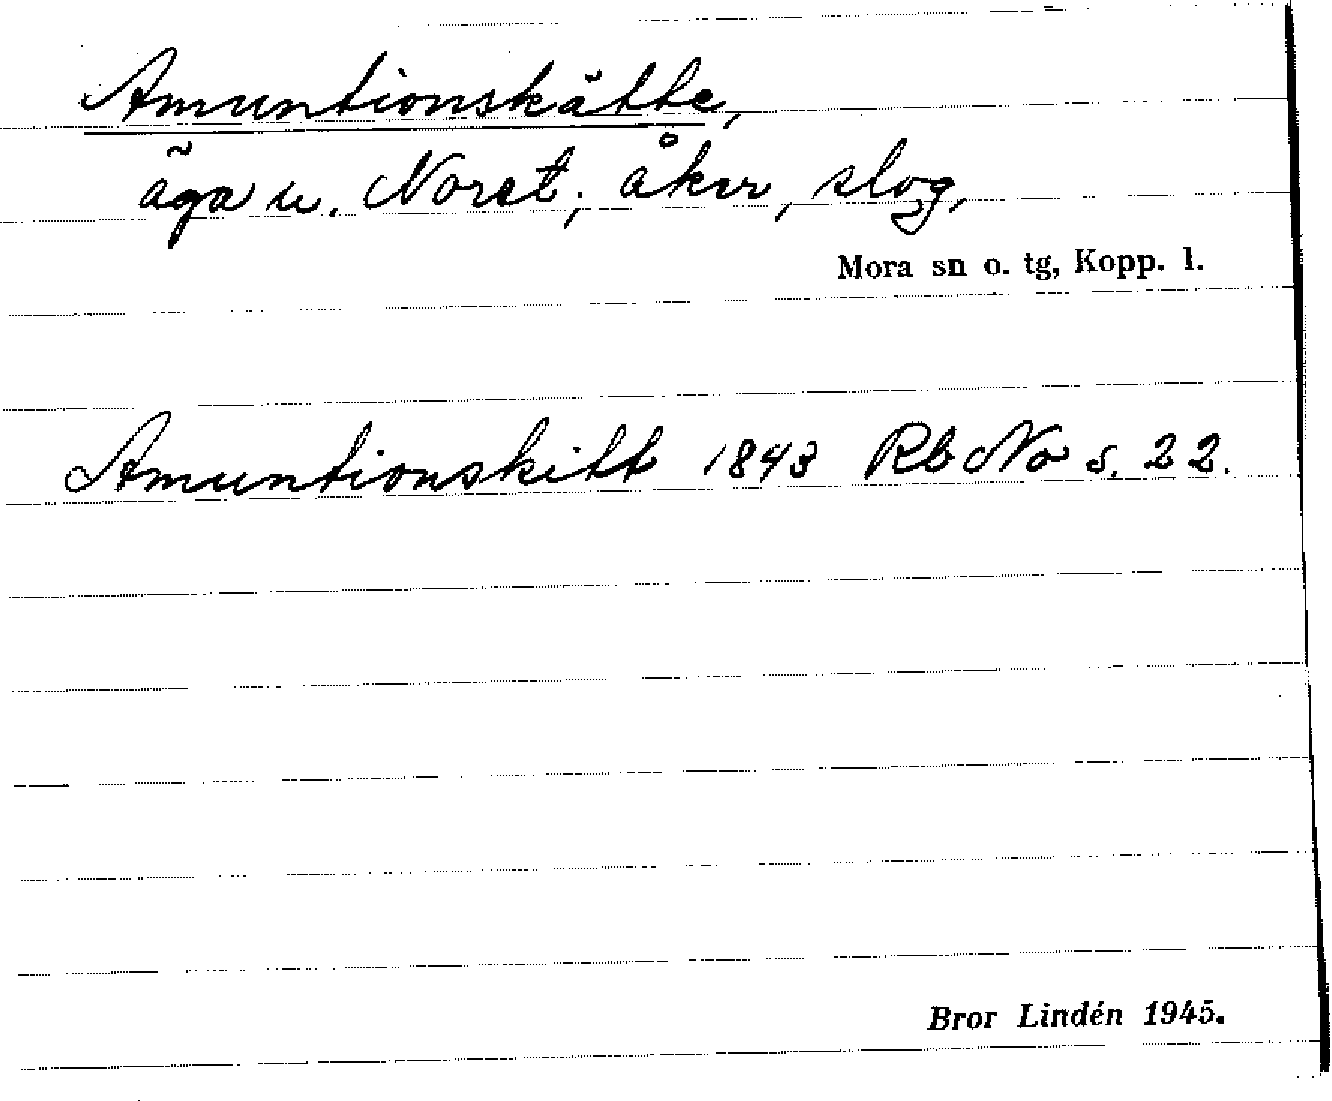 Amuntionskätte,
äga u. Noret; åker, slog,
Mora sn o. tg, Kopp. l.
Amuntionskitt 1843 Rb No s. 22.
Bror Lindén 1945.